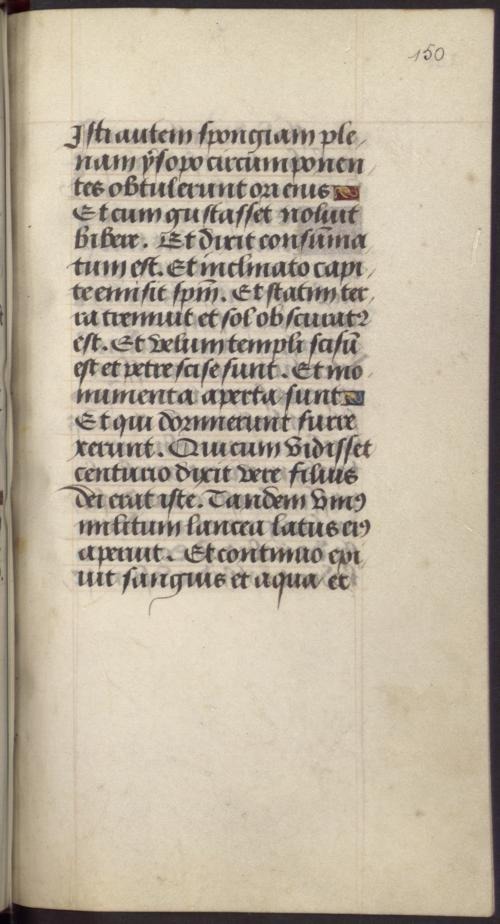 150
Isti autem spongiam ple-
nam ysopo circumponen-
tes obtulerunt ori eius
Et cum gustasset noluit
bibere. Et dixit consūma-
tum est. Et inclinato capi-
te emisit spm̄. Et statim ter-
ra tremuit et sol obscuratꝰ
est. Et velum templi scisū
est et petre scise sunt. Et mo-
numenta aperta sunt
Et qui dormierunt surre
xerunt. Qui cum vidisset
centurio dixit vere filius
dei erat iste. Tandem vnꝰ
militum lancea latus eiꝰ
aperuit. Et continuo exi-
uit sanguis et aqua et